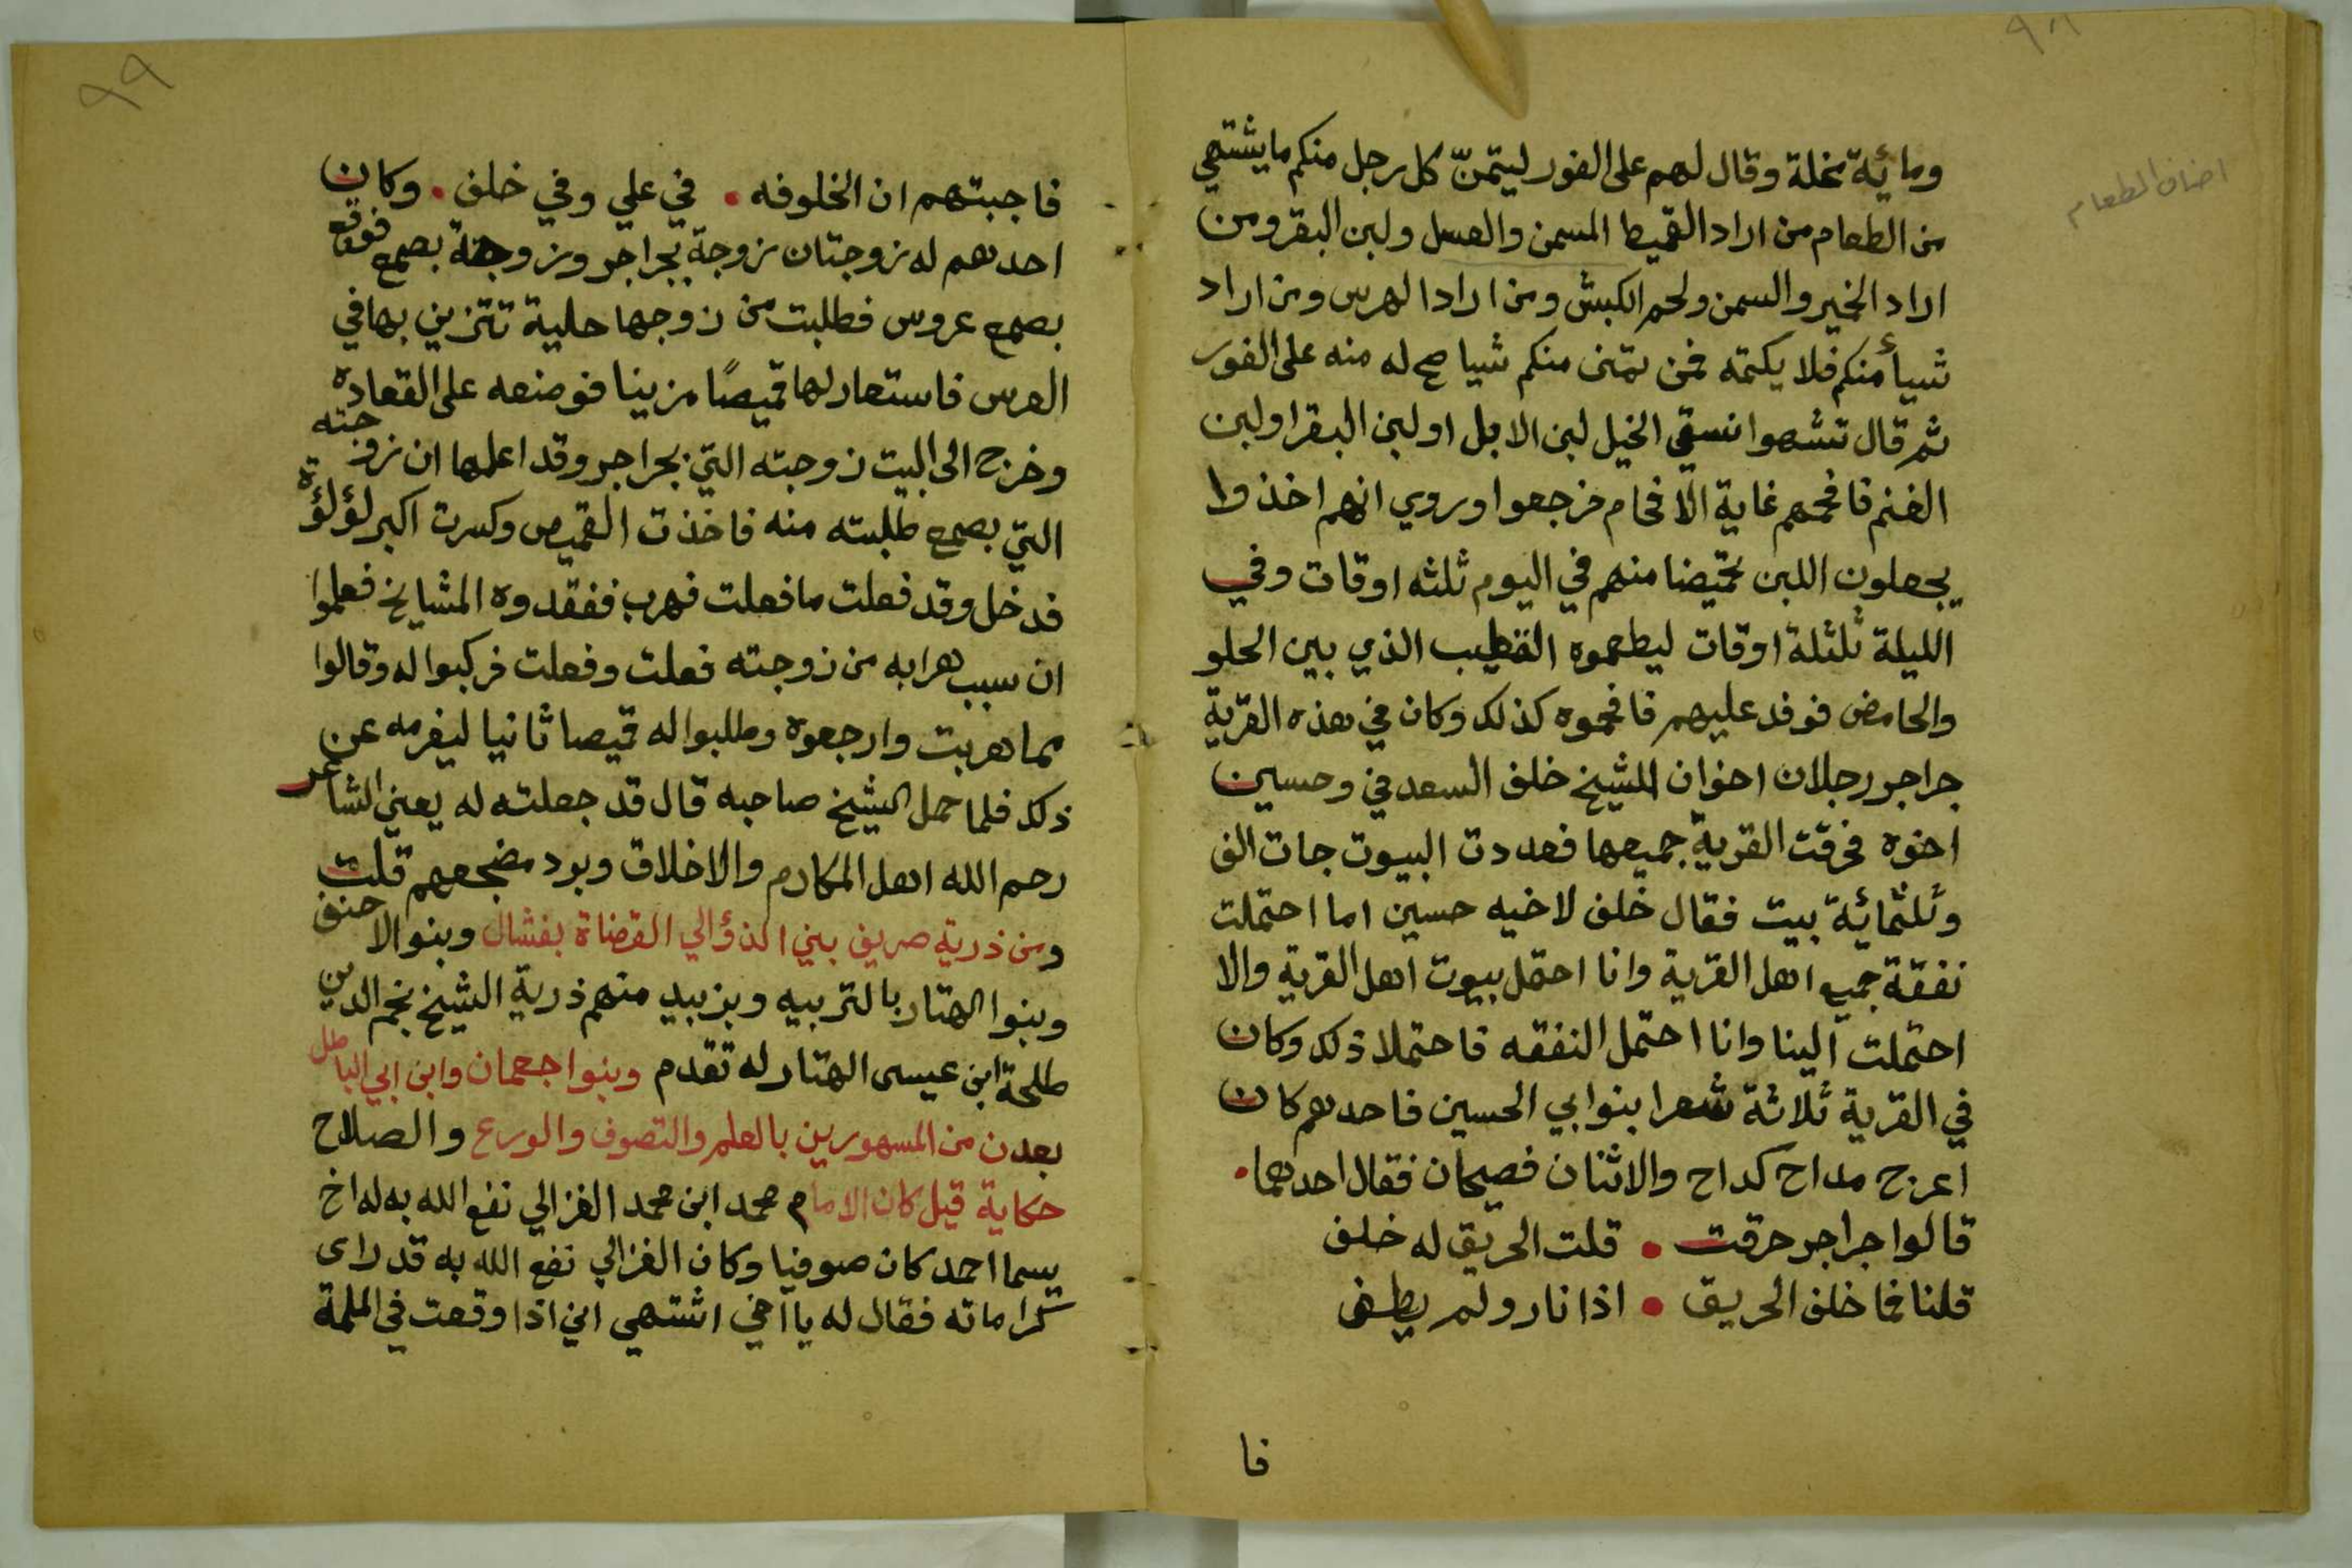 ٩٨
اصناف الطعام
ومائية نخلة وقال لهم على الفور ليتمنّ كل رجل منكم ما يشتهي
من الطعام من اراد القميط السمن والعسل ولبن البقر ومن
اراد الخير والسمن ولحم الكبش ومن اراد الهرس ومن اراد
شيأ منكم فلا يكتمه فمن تمنى منكم شيا صح له منه على الفور
ثم قال تشهوا نسقي الخيل لبن الابل او لبن البقر او لبن
الغنم فافحمهم غاية الافحام فرجعوا وروي انهم اخذوا
يجعلون اللبن مخيضا منهم في اليوم ثلثه اوقات وفي
الليلة ثلثلة اوقات ليطعموه القطيب الذي بين الحلو
والحامض فوفد عليهم فافحموه كذلك وكان في هذه القرية
جراجر رجلان اخوان الشيخ خلف السعدفي وحسين
اخوه فحرقت القرية جميعها فعددت البيوت جات الف
وثلثمائية بيت فقال خلف لاخيه حسين اما احتملت
نفقة جميع اهل القرية وانا احتمل بيوت اهل القرية والا
احتملت البنا وانا احتمل النفقه فاحتملا ذلك وكان
في القرية ثلاثة شعرا بنوا بي الحسين فاحدهم كان
اعرج مداح كداح والاثنان فصيحان فقال احدهما
قالوا جراجر حرقت • قلت الحريق له خلف
قلنا فما خلف الحريق • اذا نار ولم يطفى
فا
٩٩
فاجبتهم ان الخلوفه • في علي وفي خلف • وكان
احدهم له زوجتان زوجة بجراجر وزوجة بصمع فوقع
بصمع عروس فطلبت من زوجها حلية تتزين بها في
العرس فاستعار لها قميصًا مزينا فوضعه على القعاده
وخرج الى البيت زوجته التي بجراجر وقد اعلمها ان زوجته
التي بصمع طلبته منه فاخذت القميص وكسرت اكبر لؤلؤة
فدخل وقد فعلت ما فعلت فهرب ففقدوه المشايخ فعلموا
ان سبب هرابه من زوجته فعلت وفعلت فركبوا له وقالوا
مما هربت وارجعوه وطلبوا له قميصا ثانيا ليغرمه عن
ذلك فلما حمل الشيخ صاحبه قال قد جعلته له يعني الشاعر
رحم الله اهل المكارم والاخلاق وبود مضجعهم قلت
ومن ذرية صريف بني الذؤالي القضاة بفشال وبنوا الاحنف
وبنوا الهتار بالتربيه وبزبيد منهم ذرية الشيخ نجم الدين
طلحة ابن عيسى الهتار له تقدم وبنوا جعمان وابن ابي الباطل
بعدن من المسهورين بالعلم والتصوف والورع والصلاح
حكاية قيل كان الامام محمد ابن محمد الغزالي نفع الله به له اخ
يسما احمد كان صوفيا وكان الغزالي نفع الله به قد راى
كراماته فقال له يا اخي اشتهي اني اذا وقعت في الملمة